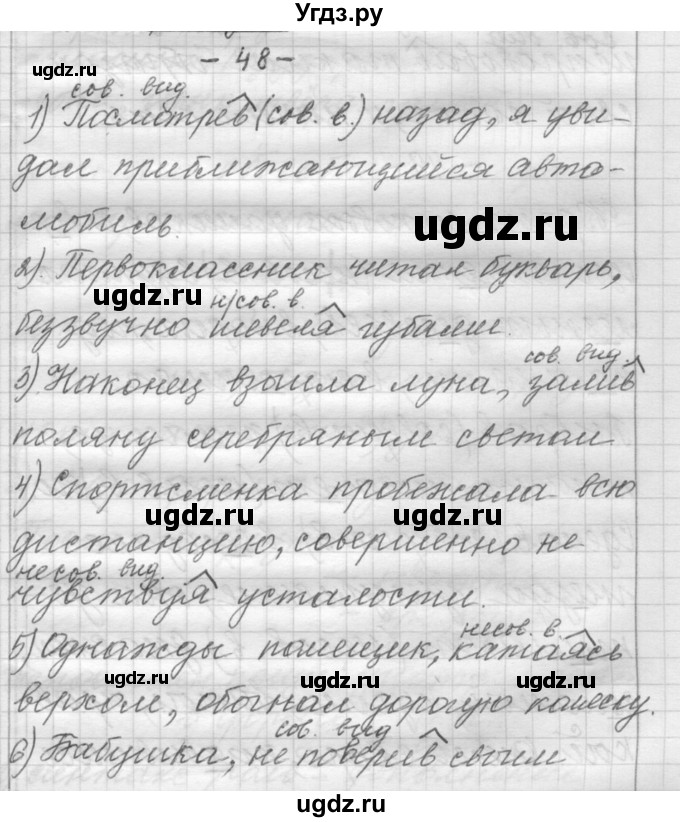 Угдз.ру
- 48 -
ugdz.ru
сов. вид.
1) Посмотрев (сов. в.) назад, я уви-
дал приближающийся авто-
мобиль.
ugdz.ru
2). Первоклассник читал букварь,
ugdz.ru
н/сов. в.
беззвучно шевеля губами.
сов. вид.
3) Наконец взошла луна, залив
поляну серебряным светом
4) Спортсменка пробежала всю
ugdz.ru ugdz.ru
дистанцию, совершенно не
несов. вид
чувствуя усталости.
несов. в.
5) Однажды помещик, катаясь
ugdz.ru ugdz.ru
верхом, обогнал дорогую коляску.
сов. вид
6) Бабушка, не поверив своим
ugdz.ru